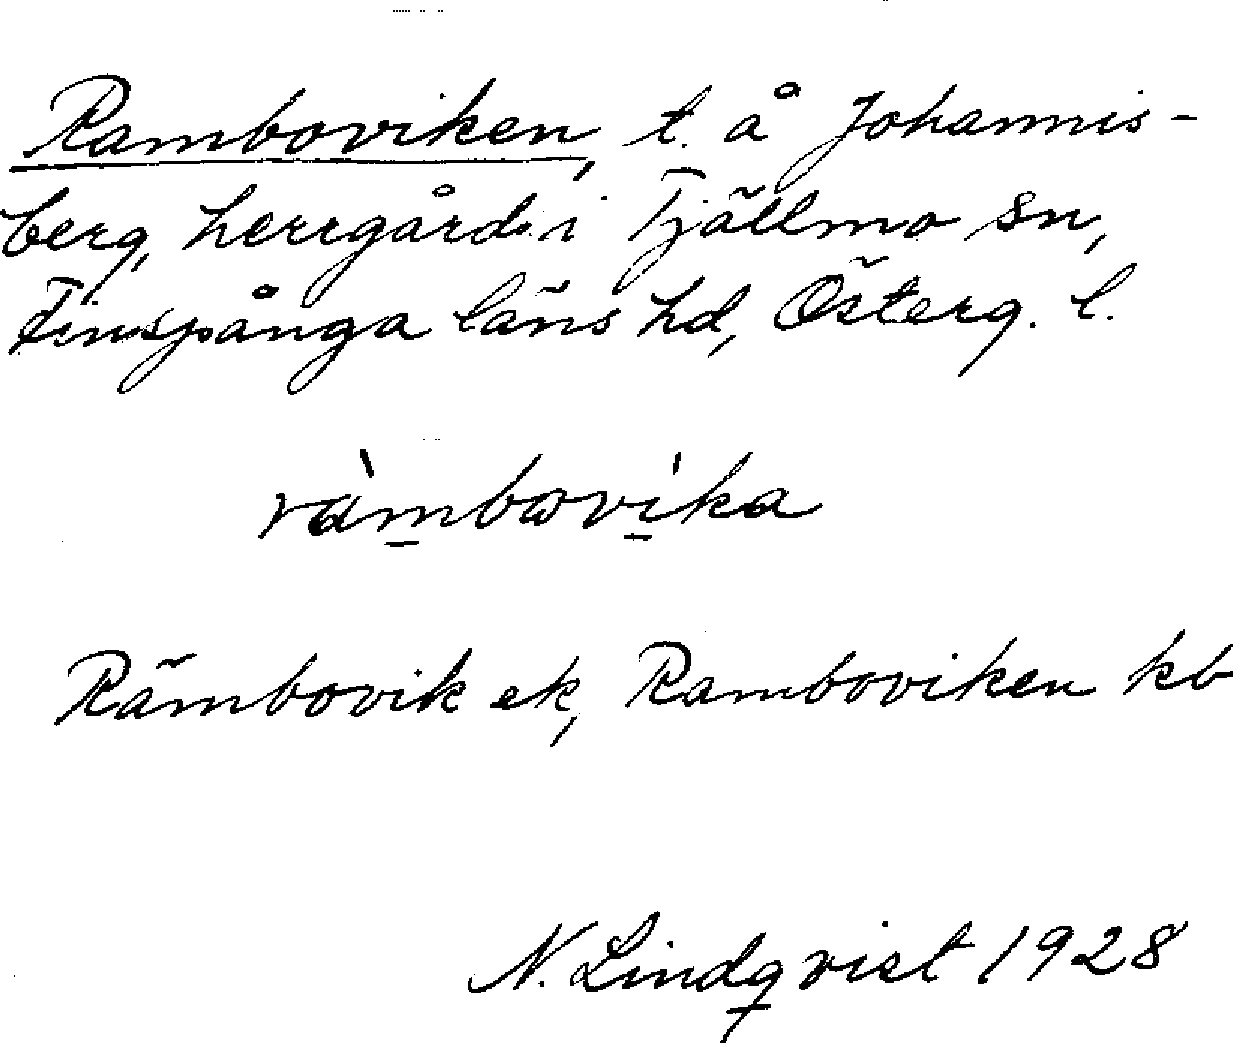 Ramboviken, t. å Johannis-
berg, herrgård i Tjällmo sn,
Finspånga läns hd, Österg. l.
ràmbovika
Rämbovik ek, Ramboviken kb
N. Lindqvist 1928